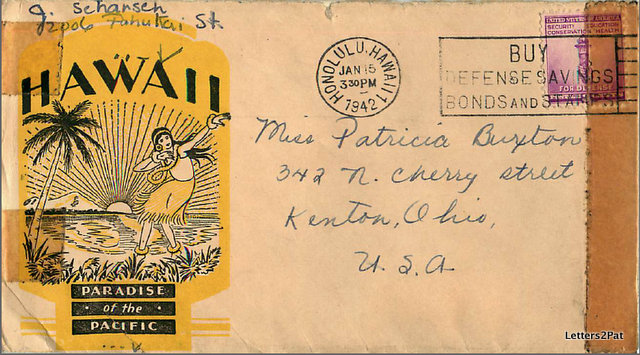 J. Scharsch
2006 Pahukai St.
HAWAII
PARADISE
of the
PACIFIC
HONOLULU, HAWAII
JAN 15
330 PM
1942
BUY
DEFENSE SAVINGS
BONDS AND STAMPS
UNITED STATES OF AMERICA
SECURITY EDUCATION
CONSERVATION HEALTH
FOR DEFENSE
Miss Patricia Buxton
342 N. Cherry Street
Kenton, Ohio,
U. S. A
Letters2Pat